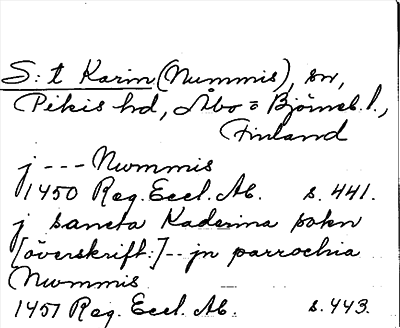 S:t Karin (Nummis), sn,
Pikis hd, Åbo o Björneb. l.,
Finland
j --- Nwmmis
1450 Reg. Eccl. Ab. s. 441.
j sancta Kaderina sokn
[överskrift:] -- jn parrochia
Nwmmis
1451 Reg. Eccl. Ab. s. 443.